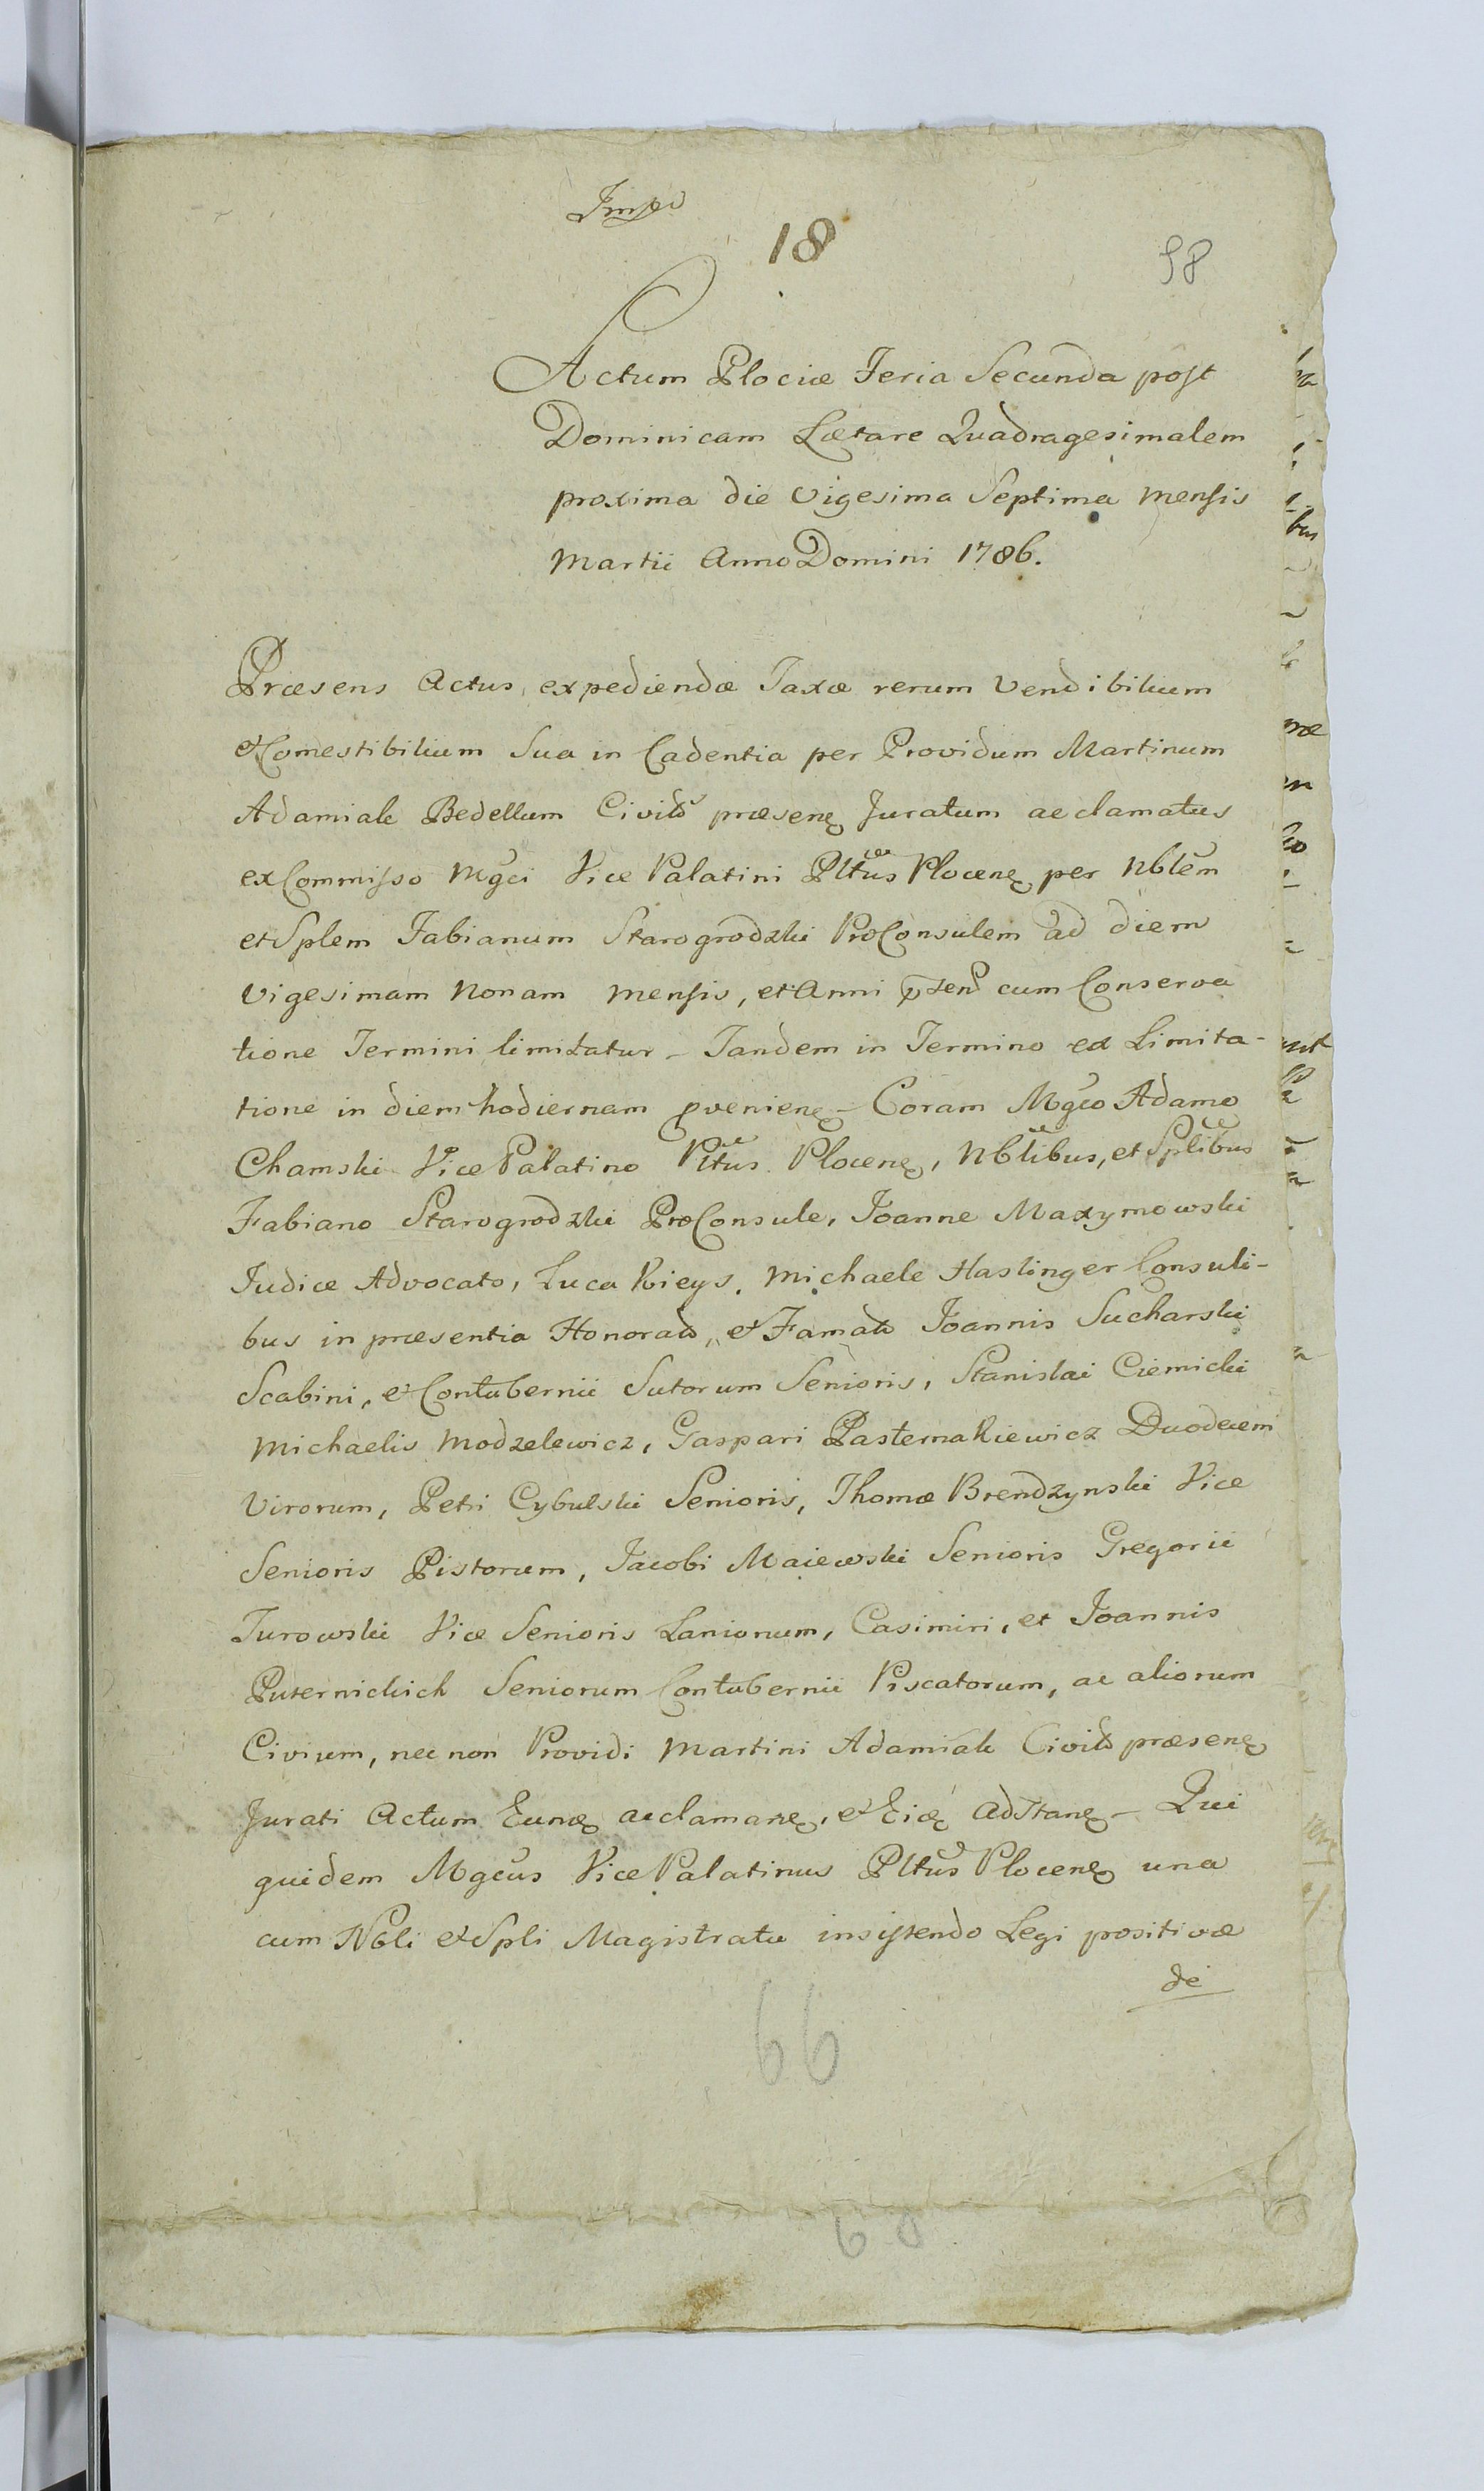 18
98
Actum Plociæ Feria Secunda post
Dominicam Lætare Quadragesimalem
proxima die vigesima Septima mensis
Martii Anno Domini 1786.
Præsens Actus, expediendæ Taxæ rerum vendibilium
et Comestibilium Sua in Cadentia per Providum Martinum
Adamiak Bedellum Civitt præsenę Juratum acclamatus
ex Commisso Mgci Vice Palatini Pltus Plocenę per Nblem
et Splem Fabianum Starogrodzki ProConsulem ad diem
vigesimam nonam mensis, et Anni cum Conserva
tione Termini limitatur – Tandem in Termino ex Limita-
tione in diem hodiernam pvenienę – Coram Mgco Adamo
Chamski Vice Palatino Pltus Plocenę, Nblibus, et Splibus
Fabiano Starogrodzki ProConsule, Joanne Maxymowski
Judice Advocato, Luca Kieys, Michaele Haslinger Consuli-
bus in præsentia Honoratt, et Famatt Joannis Sucharski
Scabini, et Contubernii Sutorum Senioris, Stanislai Ciemicki
Michaelis Modzelewicz, Gaspari Pasternakiewicz Duodecem
Virorum, Petri Cybulski Senioris, Thomæ Brendzynski Vice
Senioris Pistorum, Jacobi Maiewski Senioris Gregorii
Turowski Vice Senioris Lanionum, Casimiri, et Joannis
Puternickich Seniorum Contubernii Piscatorum, ac aliorum
Civium, nec non Providi Martini Adamiak Civitt præsenę
Jurati Actum Eunę acclamanę, et Eię adstanę – Qui
quidem Mgcus Vice Palatinus Pltus Plocenę una
cum Nbli et Spli Magistratu insistendo Legi positivæ
de
66
60